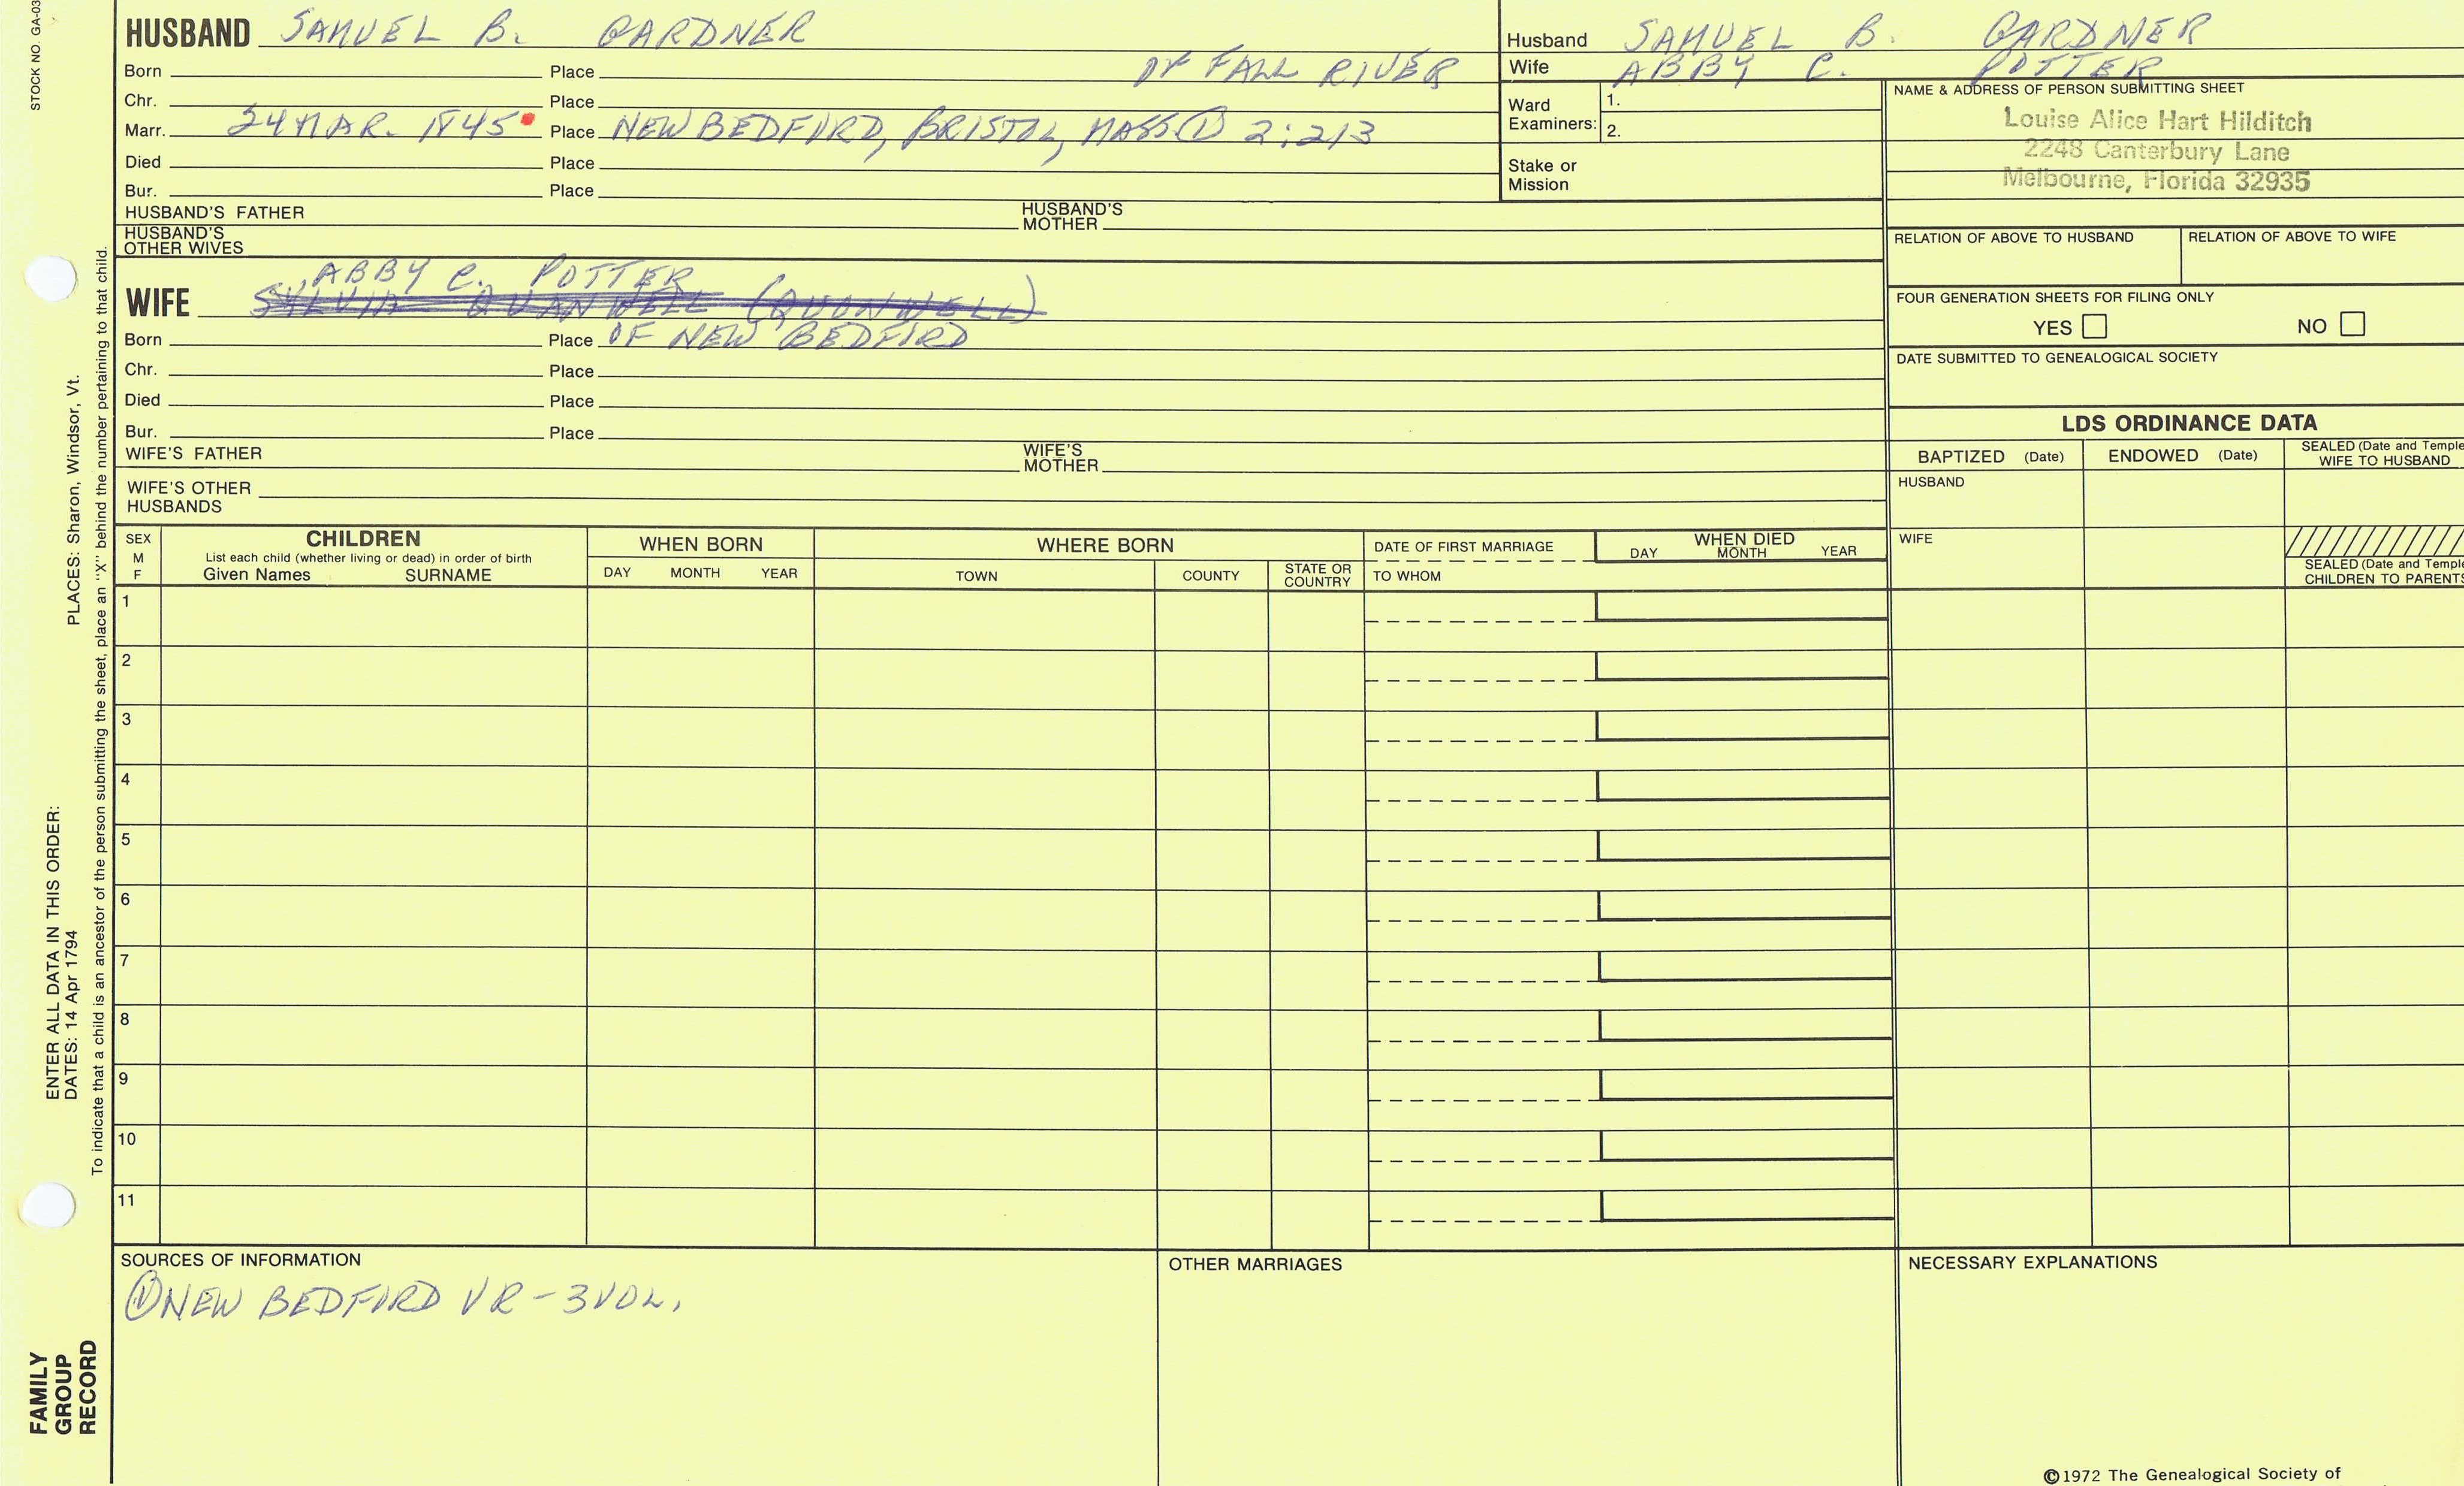 STOCK NO. GA-03
HUSBAND SAMUEL B. GARDNER
Born Place OF FALL RIVER
Chr. Place
Marr. 24 MAR. 1845 Place NEW BEDFORD, BRISTOL, MASS (1) 2:213
Died Place
Bur. Place
HUSBAND'S FATHER HUSBAND'S MOTHER
HUSBAND'S OTHER WIVES
Husband SAMUEL B. GARDNER
Wife ABBY C. POTTER
Ward Examiners: 1.
2.
Stake or Mission
NAME & ADDRESS OF PERSON SUBMITTING SHEET
Louise Alice Hart Hilditch
2248 Canterbury Lane
Melbourne, Florida 32935
RELATION OF ABOVE TO HUSBAND RELATION OF ABOVE TO WIFE
FOUR GENERATION SHEETS FOR FILING ONLY
YES NO
DATE SUBMITTED TO GENEALOGICAL SOCIETY
ABBY C. POTTER
WIFE SYLVIA QUANWELL (QUONWELL)
Born Place OF NEW BEDFORD
Chr. Place
Died Place
Bur. Place
WIFE'S FATHER WIFE'S MOTHER
WIFE'S OTHER HUSBANDS
LDS ORDINANCE DATA
BAPTIZED (Date) ENDOWED (Date) SEALED (Date and Temple
WIFE TO HUSBAND
HUSBAND
WIFE
SEALED (Date and Temple
CHILDREN TO PARENTS
SEX
M
F
CHILDREN
List each child (whether living or dead) in order of birth
Given Names SURNAME
WHEN BORN
DAY MONTH YEAR
WHERE BORN
TOWN COUNTY STATE OR COUNTRY
DATE OF FIRST MARRIAGE
TO WHOM
WHEN DIED
DAY MONTH YEAR
1
2
3
4
5
6
7
8
9
10
11
SOURCES OF INFORMATION
(1) NEW BEDFORD VR - 3 VOL.
OTHER MARRIAGES
NECESSARY EXPLANATIONS
©1972 The Genealogical Society of
PLACES: Sharon, Windsor, Vt.
ENTER ALL DATA IN THIS ORDER:
DATES: 14 Apr 1794
To indicate that a child is an ancestor of the person submitting the sheet, place an "X" behind the number pertaining to that child.
FAMILY
GROUP
RECORD